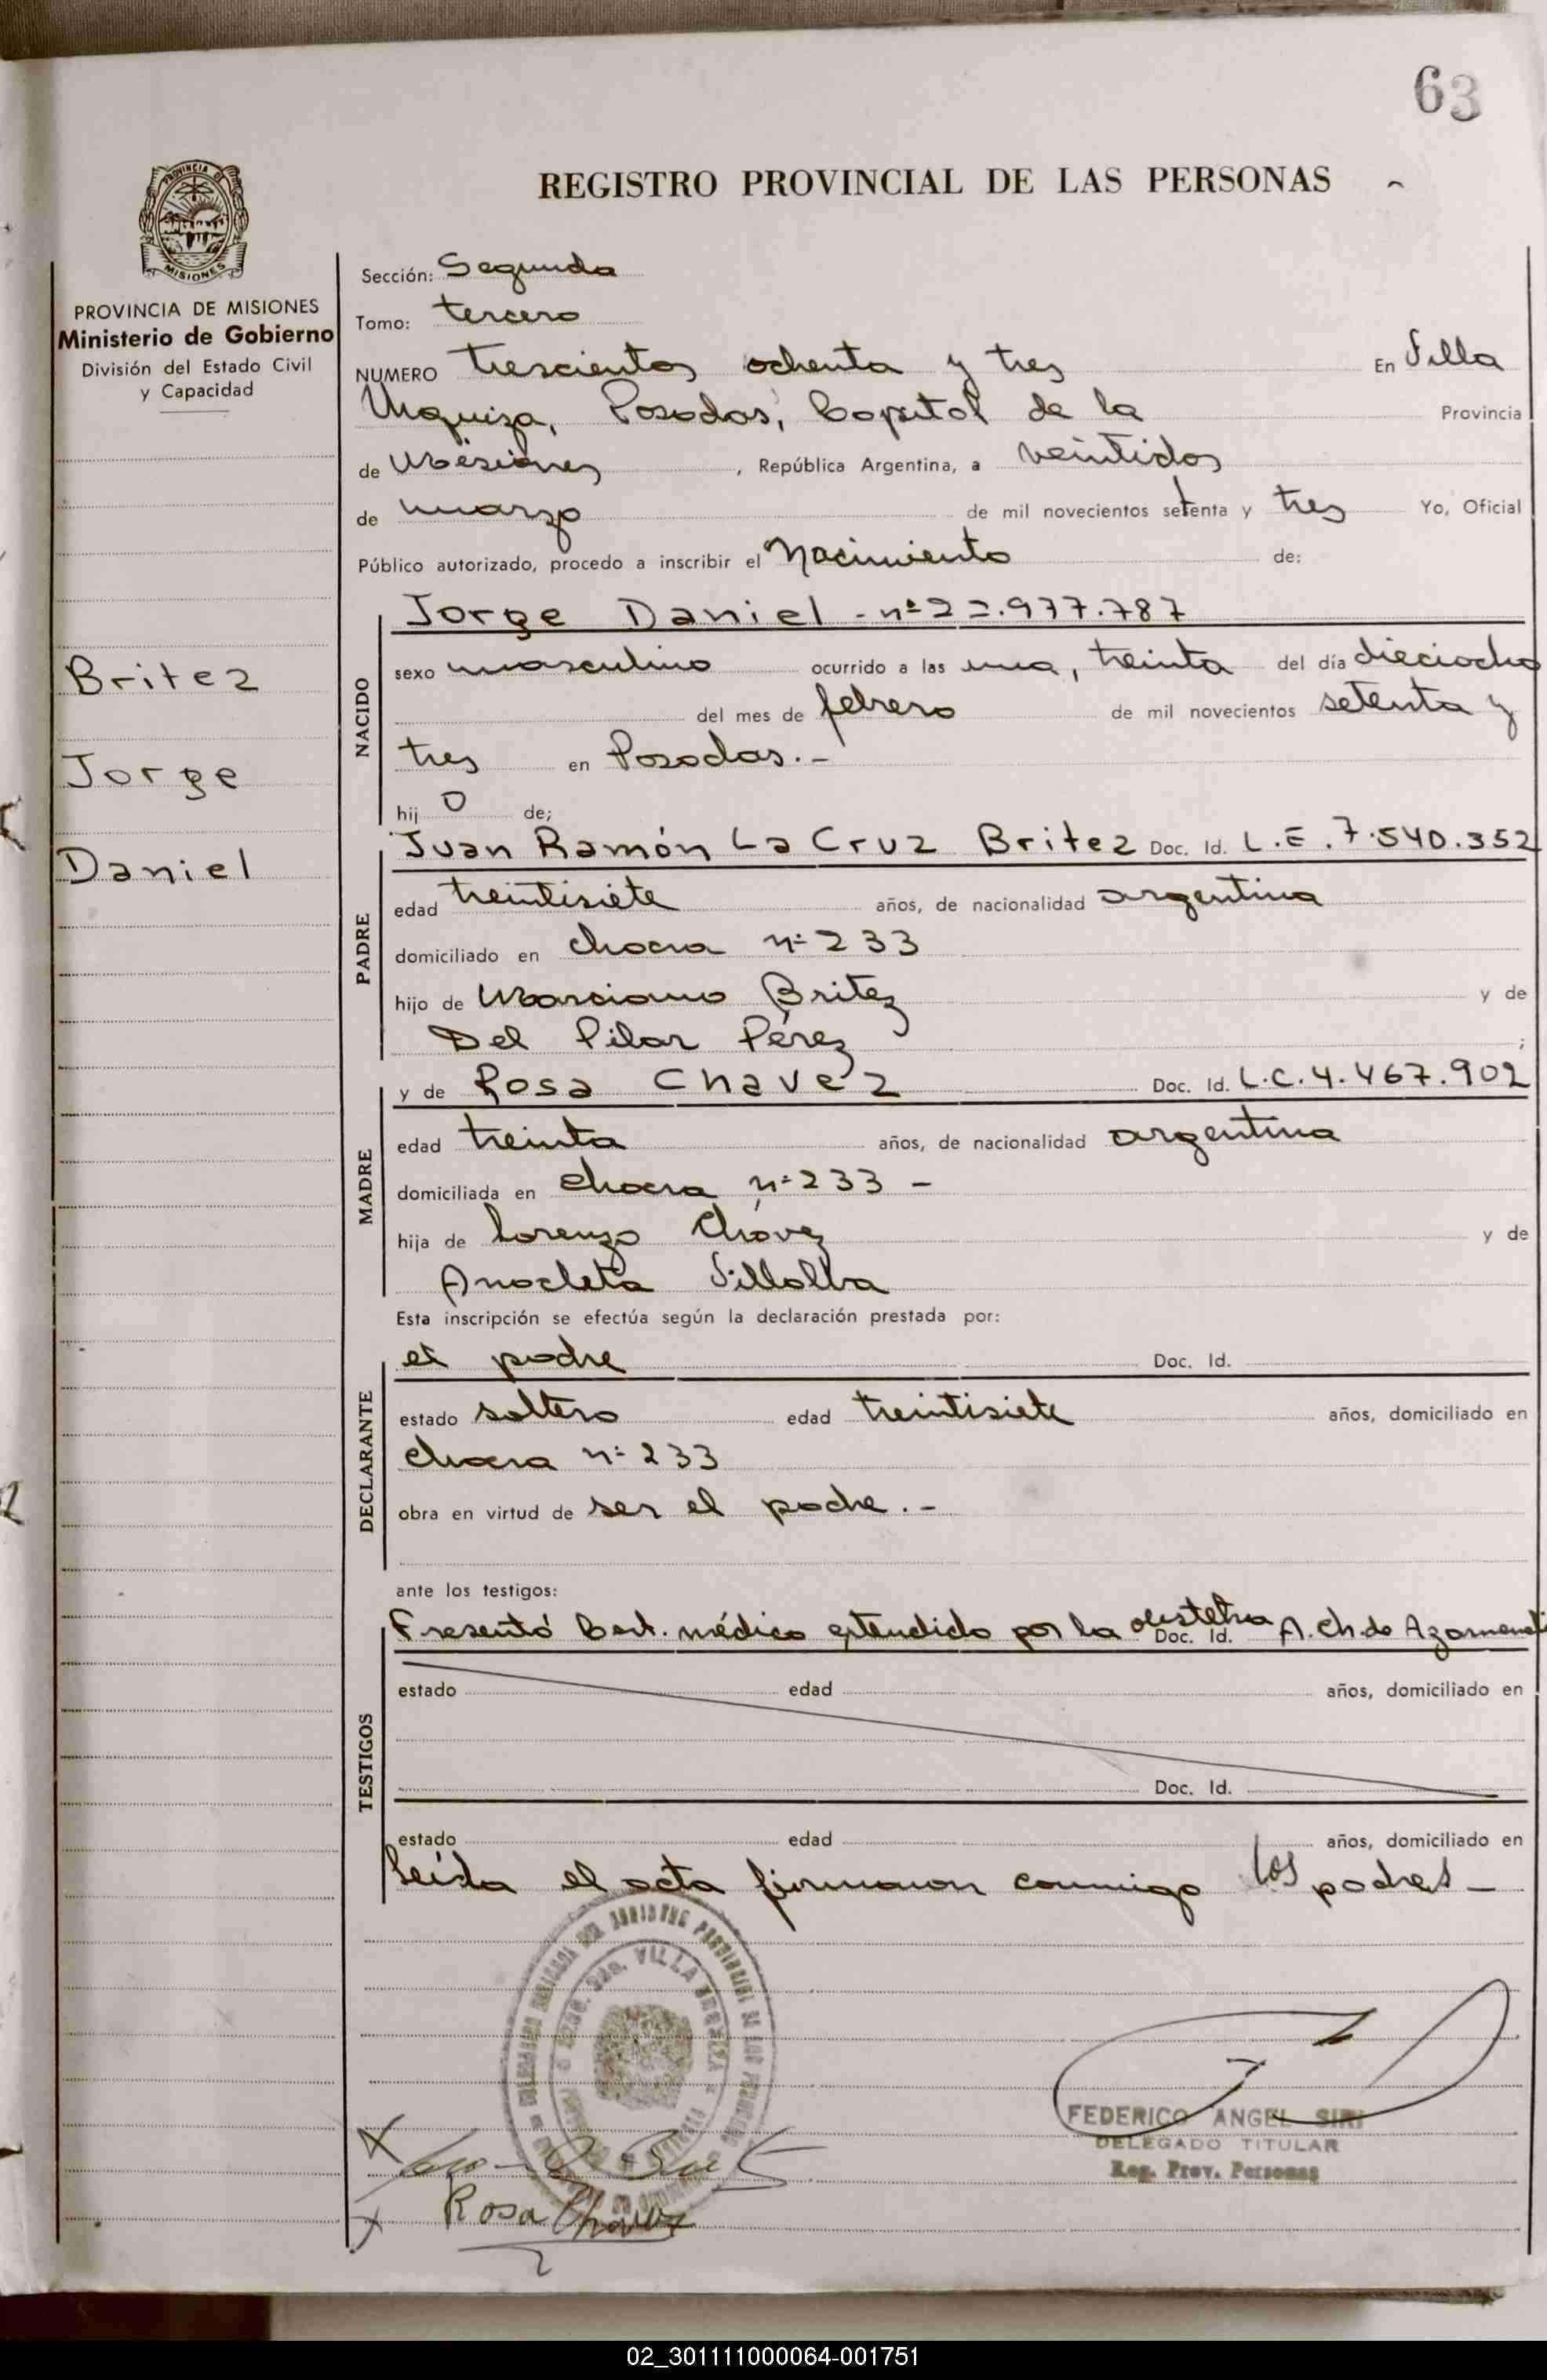 63
REGISTRO PROVINCIAL DE LAS PERSONAS
PROVINCIA DE
MISIONES
PROVINCIA DE MISIONES
Ministerio de Gobierno
División del Estado Civil
y Capacidad
Britez
Jorge
Daniel
Sección: Segunda
Tomo: tercero
NUMERO trescientos ochenta y tres En Villa
Urquiza, Posadas, Capital de la Provincia
de Misiones, República Argentina, a veintidos
de marzo de mil novecientos setenta y tres Yo, Oficial
Público autorizado, procedo a inscribir el Nacimiento de:
NACIDO
Jorge Daniel - nº 22.977.787
sexo masculino ocurrido a las una, treinta del día dieciocho
del mes de febrero de mil novecientos setenta y
tres en Posadas.-
hij o de;
PADRE
Juan Ramón La Cruz Britez Doc. Id. L.E. 7.540.352
edad treintisiete años, de nacionalidad argentina
domiciliado en chacra nº 233
hijo de Marciano Britez y de
Del Pilar Pérez ;
MADRE
y de Rosa Chavez Doc. Id. L.C. 4.467.902
edad treinta años, de nacionalidad argentina
domiciliada en chacra nº 233 -
hija de Lorenzo Chávez y de
Anacleta Villalba
Esta inscripción se efectúa según la declaración prestada por:
DECLARANTE
el padre Doc. Id.
estado soltero edad treintisiete años, domiciliado en
chacra nº 233
obra en virtud de ser el padre.-
ante los testigos:
TESTIGOS
Presentó Cert. médico extendido por la obstetra Doc. Id. A. Ch. de
estado edad años, domiciliado en
Doc. Id.
estado edad años, domiciliado en
Leída el acta firmaron conmigo los padres -
VILLA URQUIZA
FEDERICO ANGEL SIRI
DELEGADO TITULAR
Reg. Prov. Personas
Rosa Chavez
02_301111000064-001751